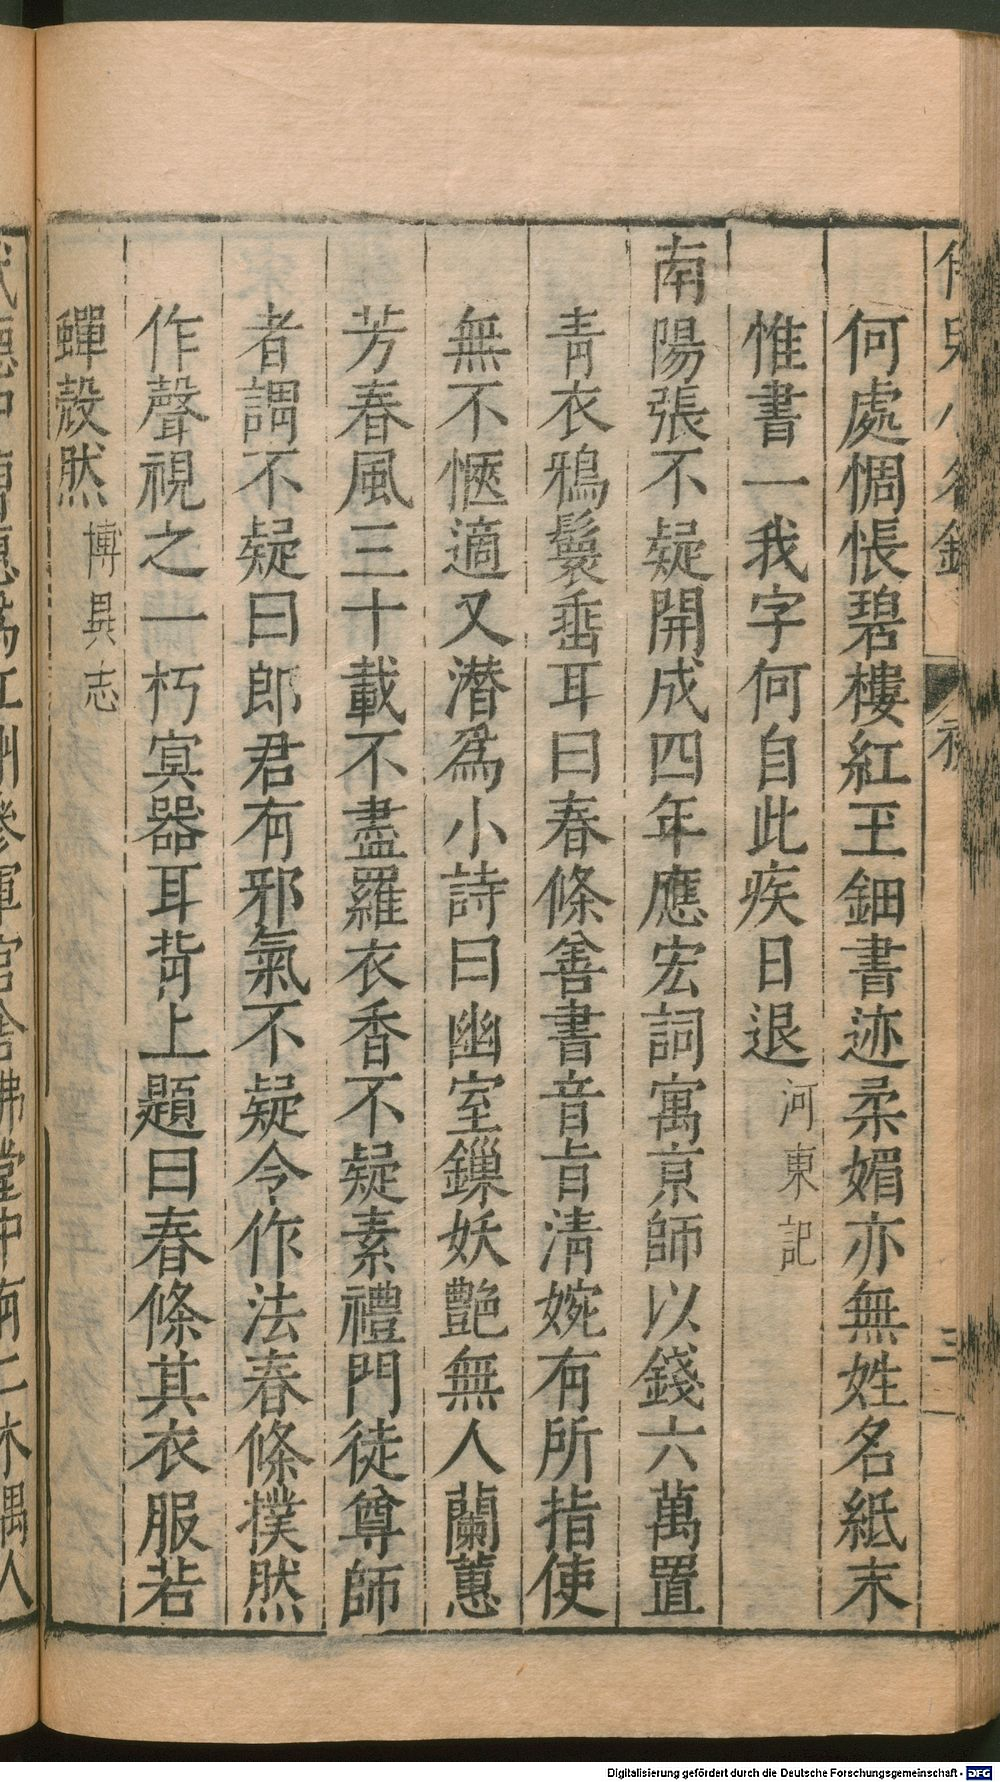 何處惆悵碧樓紅玉鈿書迹柔媚亦無姓名紙末
惟書一我字何自此疾日退河東記
南陽張不疑開成四年應宏詞寓京師以錢六萬置
青衣鴉鬟垂耳曰春條善書音旨清婉有所指使
無不愜適又潜爲小詩曰幽室鏁妖艷無人蘭蕙
芳春風三十載不盡羅衣香不疑素禮門徒尊師
者謂不疑曰郎君有邪氣不疑令作法春條撲然
作聲視之一朽㝠器耳背上題曰春條其衣服若
蟬殻然博異志
Digitalisierung gefördert durch die Deutsche Forschungsgemeinschaft - DFG